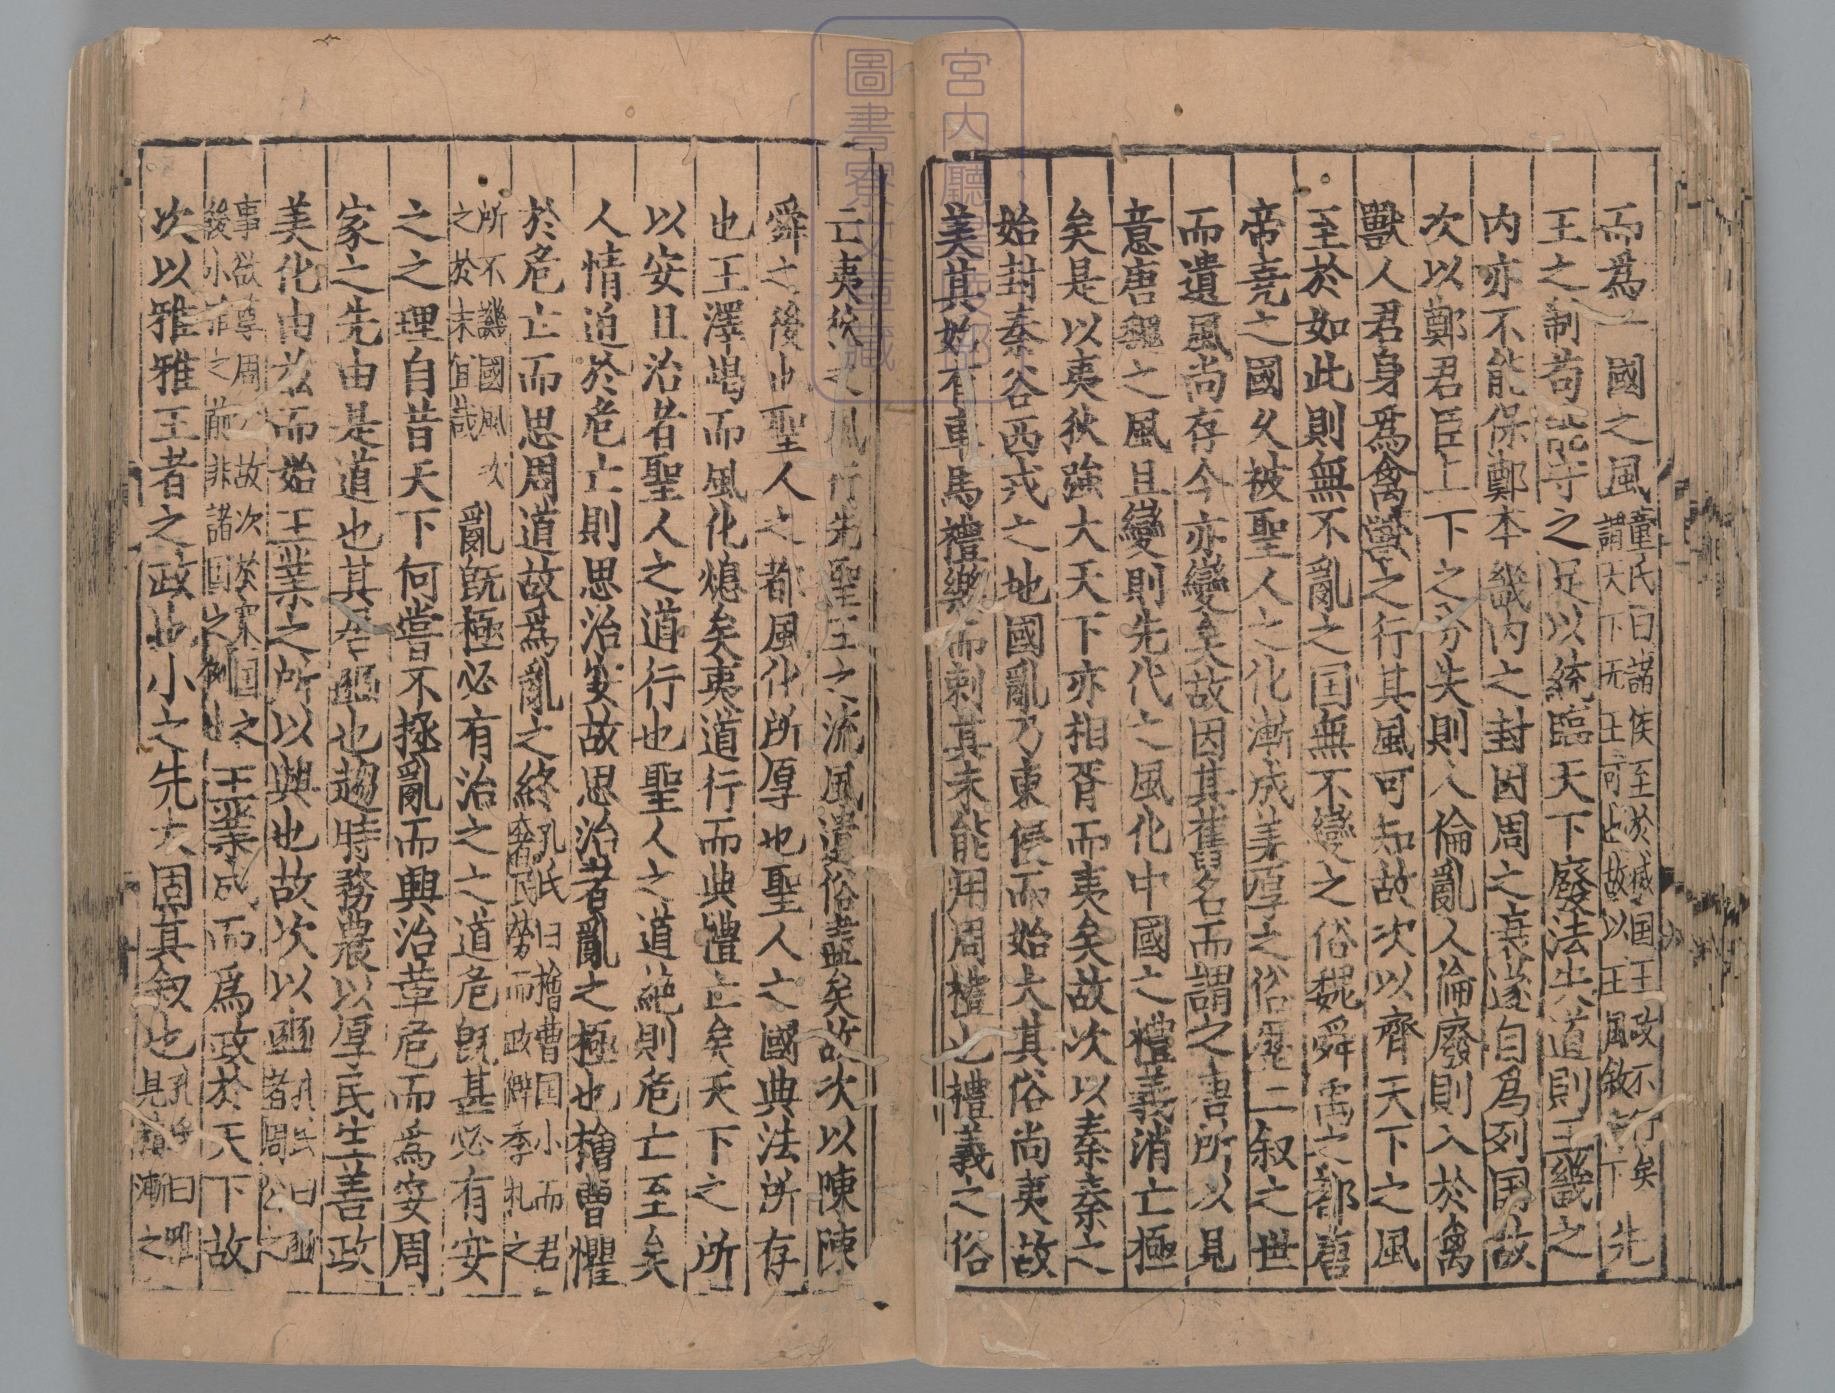 而爲一國之風董氏曰諸侯至於滅国王政不行矣謂天下无王可也故以王風敘于下先
王之制苟能守之足以統臨天下廢法失道則王畿之
内亦不能保鄭本畿内之封因周之衰遂自爲列国故
次以鄭君臣上下之分失則人倫亂人倫廢則入於禽
獸人君身爲禽獸之行其風可知故次以齊天下之風
至於如此則無不亂之国無不變之俗魏舜禹之都唐
帝堯之國久被聖人之化漸成美厚之俗歷二叙之世
而遺風尚存今亦變矣故因其舊名而謂之唐所以見
意唐魏之風且變則先代之風化中國之禮義消亡極
矣是以夷狄強大天下亦相胥而夷矣故次以秦秦之
始封秦谷西戎之地國亂乃東侵而始大其俗尚夷故
美其始有車馬禮樂而刺其未能用周禮也禮義之俗
亡夷狄之風行先聖王之流風遺俗盡矣故次以陳陳
舜之後也聖人之都風化所厚也聖人之國典法所存
也王澤竭而風化熄矣夷道行而典禮亡矣天下之所
以安且治者聖人之道行也聖人之道絶則危亡至矣
人情迫於危亡則思治安故思治者亂之極也檜曹懼
於危亡而思周道故爲亂之終孔氏曰檜曹国小而君奢民勞而政僻季札之
所不譏國風次之於末宜哉亂旣極必有治之之道危旣甚必有安
之之理自昔天下何嘗不拯亂而興治革危而爲安周
家之先由是道也其居豳也趨時務農以厚民生善政
美化由兹而始王業之所以興也故次以豳孔氏曰豳者周公之
事欲尊周公故次於衆国之後小雅之前非諸国之例也王業成而爲政於天下故
次以雅雅王者之政也小之先大固其叙也孔氏曰雅見積漸之